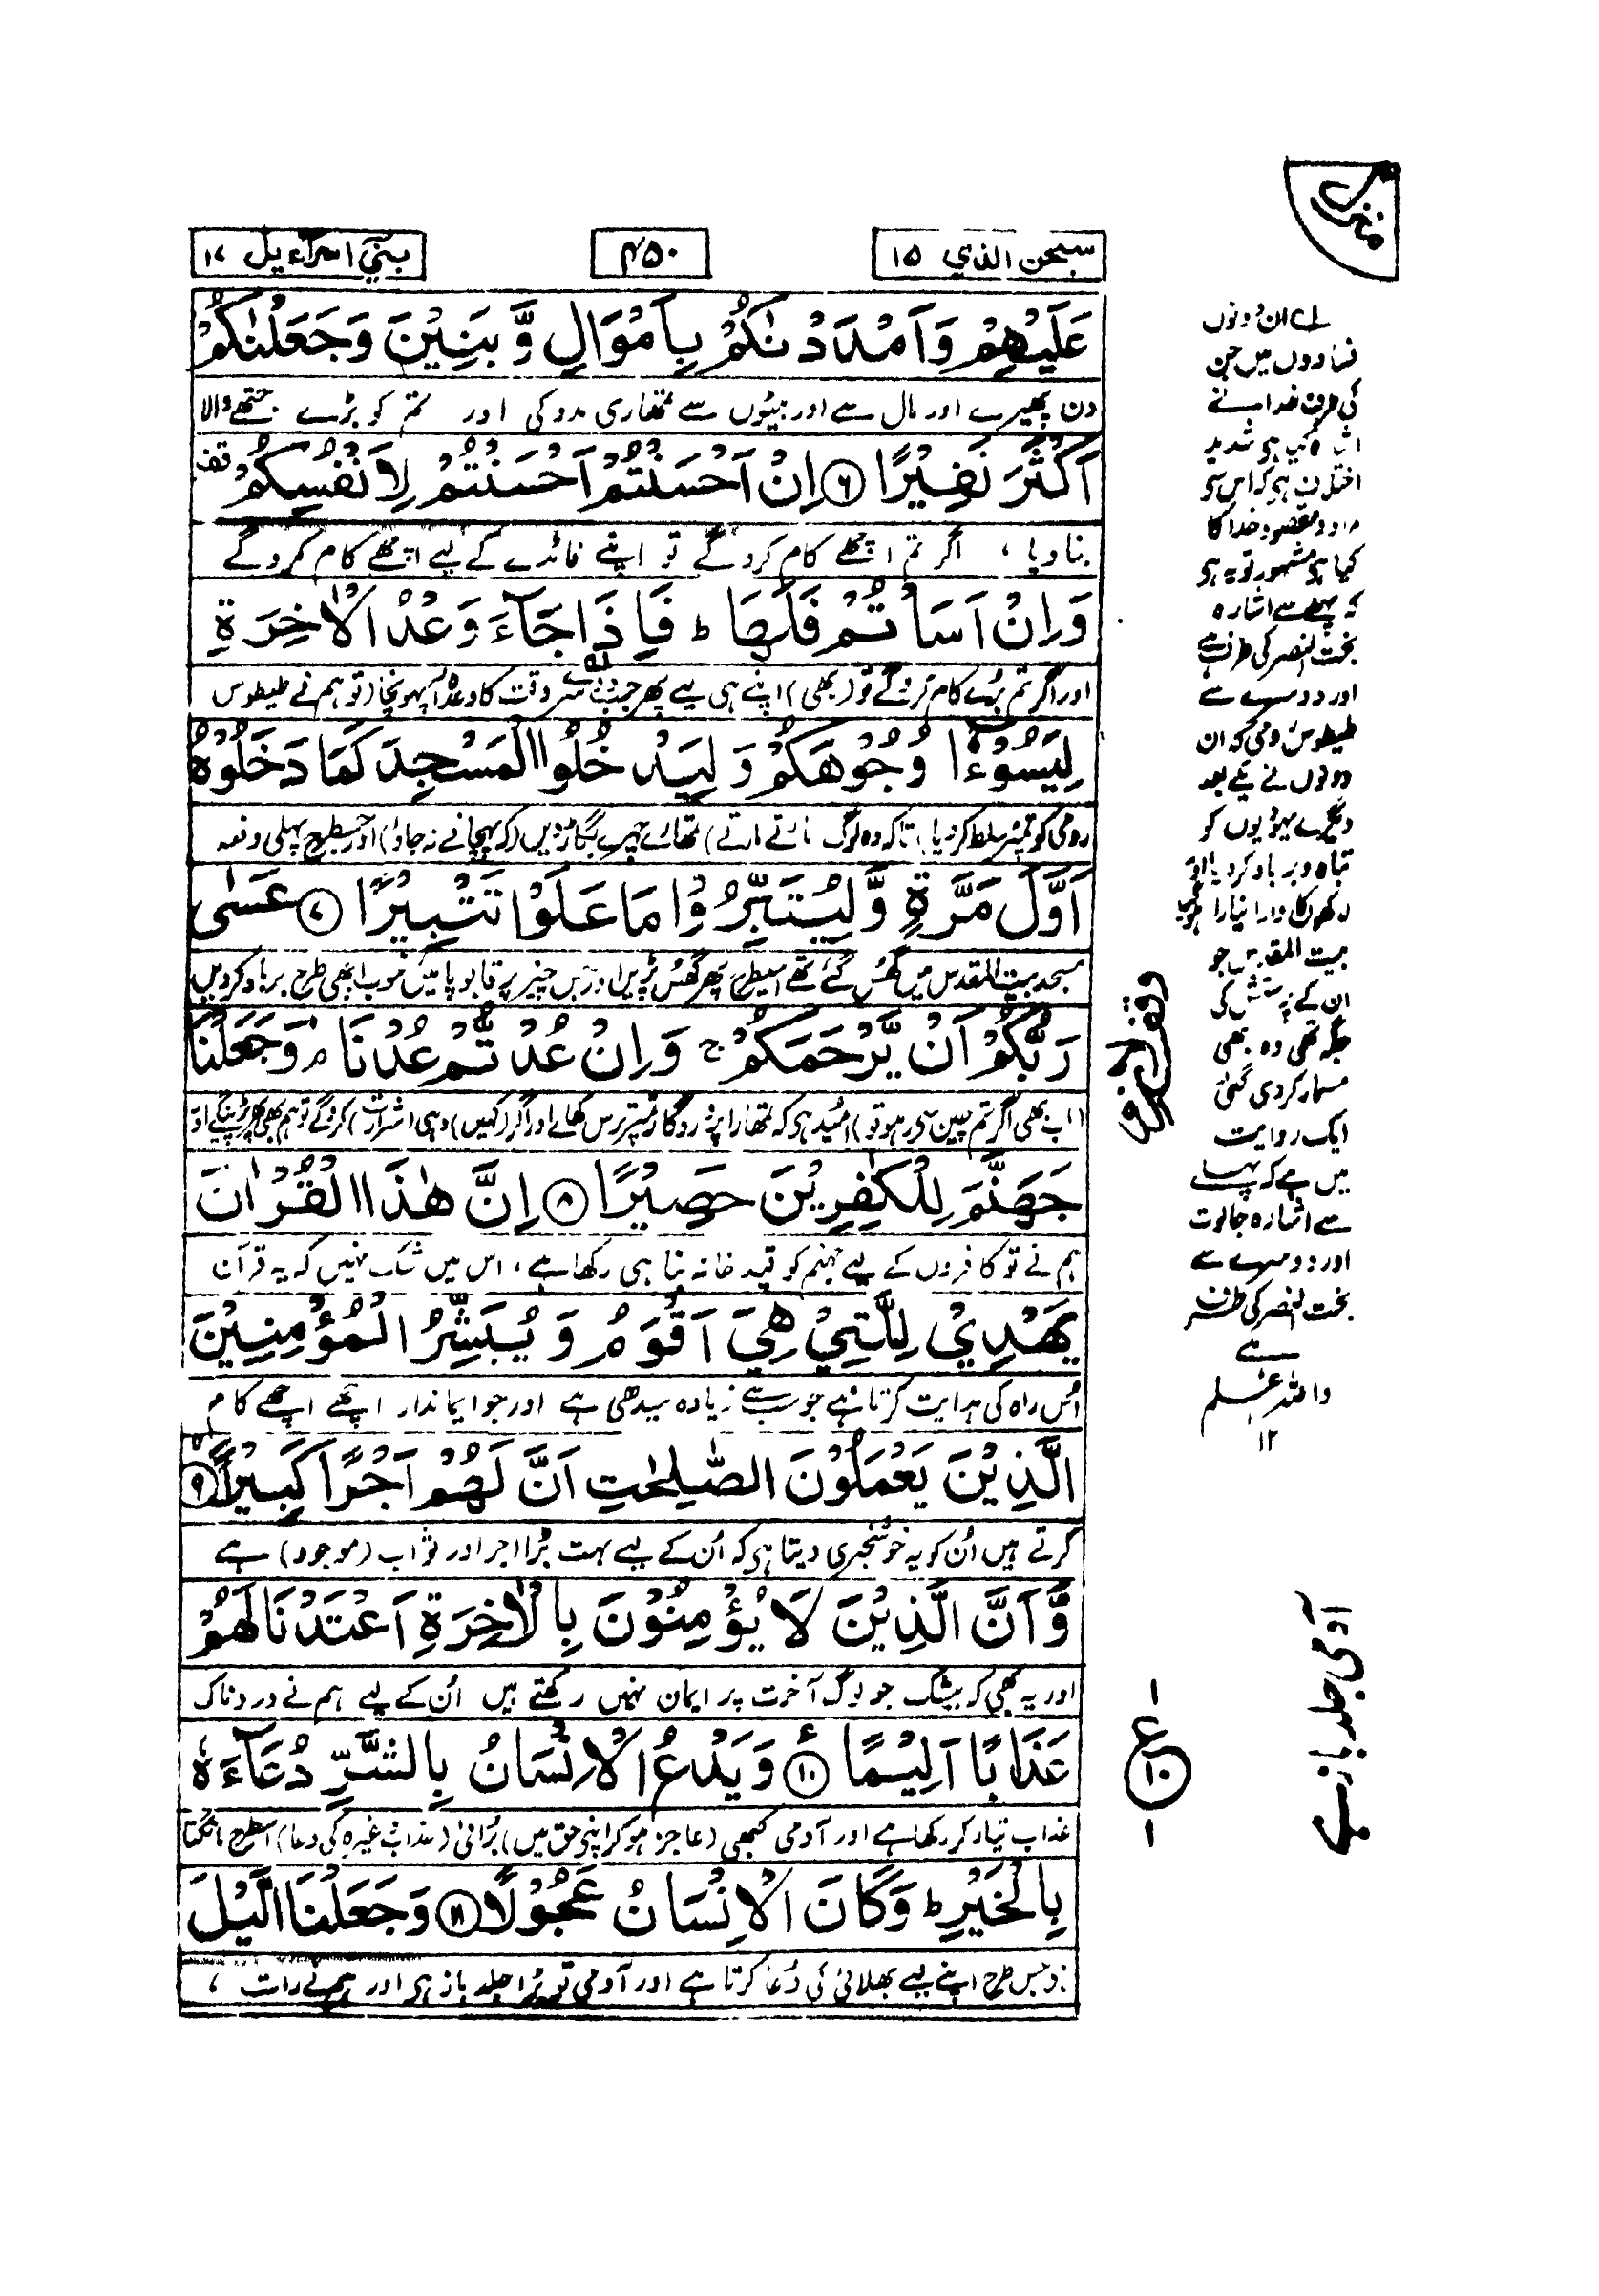 منزل
سبحن الذي ۱۵
۴۵۰
بني اسرآءيل ۱۷
عَلَيْهِمْ وَاَمْدَدْنٰكُمْ بِاَمْوَالٍ وَّبَنِيْنَ وَجَعَلْنٰكُمْ
دن پھیرے اور مال سے اور بیٹوں سے تمھاری مدد کی اور تم کو بڑے جتھے والا
اَكْثَرَ نَفِيْرًا ۶ اِنْ اَحْسَنْتُمْ اَحْسَنْتُمْ لِاَنْفُسِكُمْ قف
بنا دیا، اگر تم اچھے کام کرو گے تو اپنے فائدے کے لیے اچھے کام کرو گے
وَاِنْ اَسَاْتُمْ فَلَهَا ط فَاِذَا جَآءَ وَعْدُ الْاٰخِرَةِ
اور اگر تم بُرے کام کرو گے تو (بھی) اپنے ہی لیے پھر جب دوسرے وقت کا وعدہ آپہونچا (تو ہم نے طیطوس
لِيَسُوْٓءٗا وُجُوْهَكُمْ وَلِيَدْخُلُوا الْمَسْجِدَ كَمَا دَخَلُوْهُ
رومی کو تمپر مسلط کر دیا) تاکہ وہ لوگ (مارتے مارتے) تمھارے چہرے بگاڑ دیں (کہ پہچانے نہ جاؤ) اور جسطرح پہلی دفعہ
اَوَّلَ مَرَّةٍ وَّلِيُتَبِّرُوْا مَا عَلَوْا تَتْبِيْرًا ۷ عَسٰى
مسجد بیت المقدس میں گھس گئے تھے اسیطرح پھر گھس پڑیں اور جس چیز پر قابو پائیں خوب اچھی طرح برباد کر دیں
رَبُّكُمْ اَنْ يَّرْحَمَكُمْ ج وَاِنْ عُدْتُّمْ عُدْنَا م وَجَعَلْنَا
(اب بھی اگر تم چین سے رہو تو) امید ہی کہ تمھارا پروردگار تمپر ترس کھائے اور اگر (کہیں) وہی (شرارت) کرو گے تو ہم بھی پھر پڑینگے اور
جَهَنَّمَ لِلْكٰفِرِيْنَ حَصِيْرًا ۸ اِنَّ هٰذَا الْقُرْاٰنَ
ہم نے تو کافروں کے لیے جہنم کو قید خانہ بنا ہی رکھا ہے، اس میں شک نہیں کہ یہ قرآن
يَهْدِيْ لِلَّتِيْ هِيَ اَقْوَمُ وَيُبَشِّرُ الْمُؤْمِنِيْنَ
اُس راہ کی ہدایت کرتا ہے جو سب سے زیادہ سیدھی ہے اور جو ایماندار اچھے اچھے کام
الَّذِيْنَ يَعْمَلُوْنَ الصّٰلِحٰتِ اَنَّ لَهُمْ اَجْرًا كَبِيْرًا ۹
کرتے ہیں اُن کو یہ خوشخبری دیتا ہی کہ اُن کے لیے بہت بڑا اجر اور ثواب (موجود) ہے
وَّاَنَّ الَّذِيْنَ لَا يُؤْمِنُوْنَ بِالْاٰخِرَةِ اَعْتَدْنَا لَهُمْ
اور یہ بھی کہ بیشک جو لوگ آخرت پر ایمان نہیں رکھتے ہیں اُن کے لیے ہم نے دردناک
عَذَابًا اَلِيْمًا ۱۰ ع وَيَدْعُ الْاِنْسَانُ بِالشَّرِّ دُعَآءَهٗ
عذاب تیار کر رکھا ہے اور آدمی کبھی (عاجز ہو کر اپنی حق میں) بُرائی (عذاب وغیرہ کی دعا) اسطرح مانگتا
بِالْخَيْرِ ط وَكَانَ الْاِنْسَانُ عَجُوْلًا ۱۱ وَجَعَلْنَا الَّيْلَ
جس طرح اپنے لیے بھلائی کی دُعا کرتا ہے اور آدمی تو بڑا جلد باز ہی اور ہم نے رات
لے ان دونوں
فسادوں میں جن
کی طرف خدا نے
اشارہ کیا ہی شدید
اختلاف ہی کہ اس سی
مراد و مقصود خدا کا
کیا ہی مشہور تو یہ ہی
کہ پہلے سے اشارہ
بخت النصر کی طرف ہے
اور دوسرے سے
طیطوس رومی کہ ان
دونوں نے یکے بعد
دیگرے یہودیوں کو
تباہ و برباد کر دیا اور
لاکھوں کا وارا نیارا ہوگیا
بیت المقدس جو
ان کے پرستش کی
جگہ تھی وہ بھی
مسمار کر دی گئی
ایک روایت
میں ہے کہ پہلے
سے اشارہ جالوت
اور دوسرے سے
بخت النصر کی طرف
ہے
واللہ اعلم
۱۲
ع ۱۰
آدمی جلد باز ہے